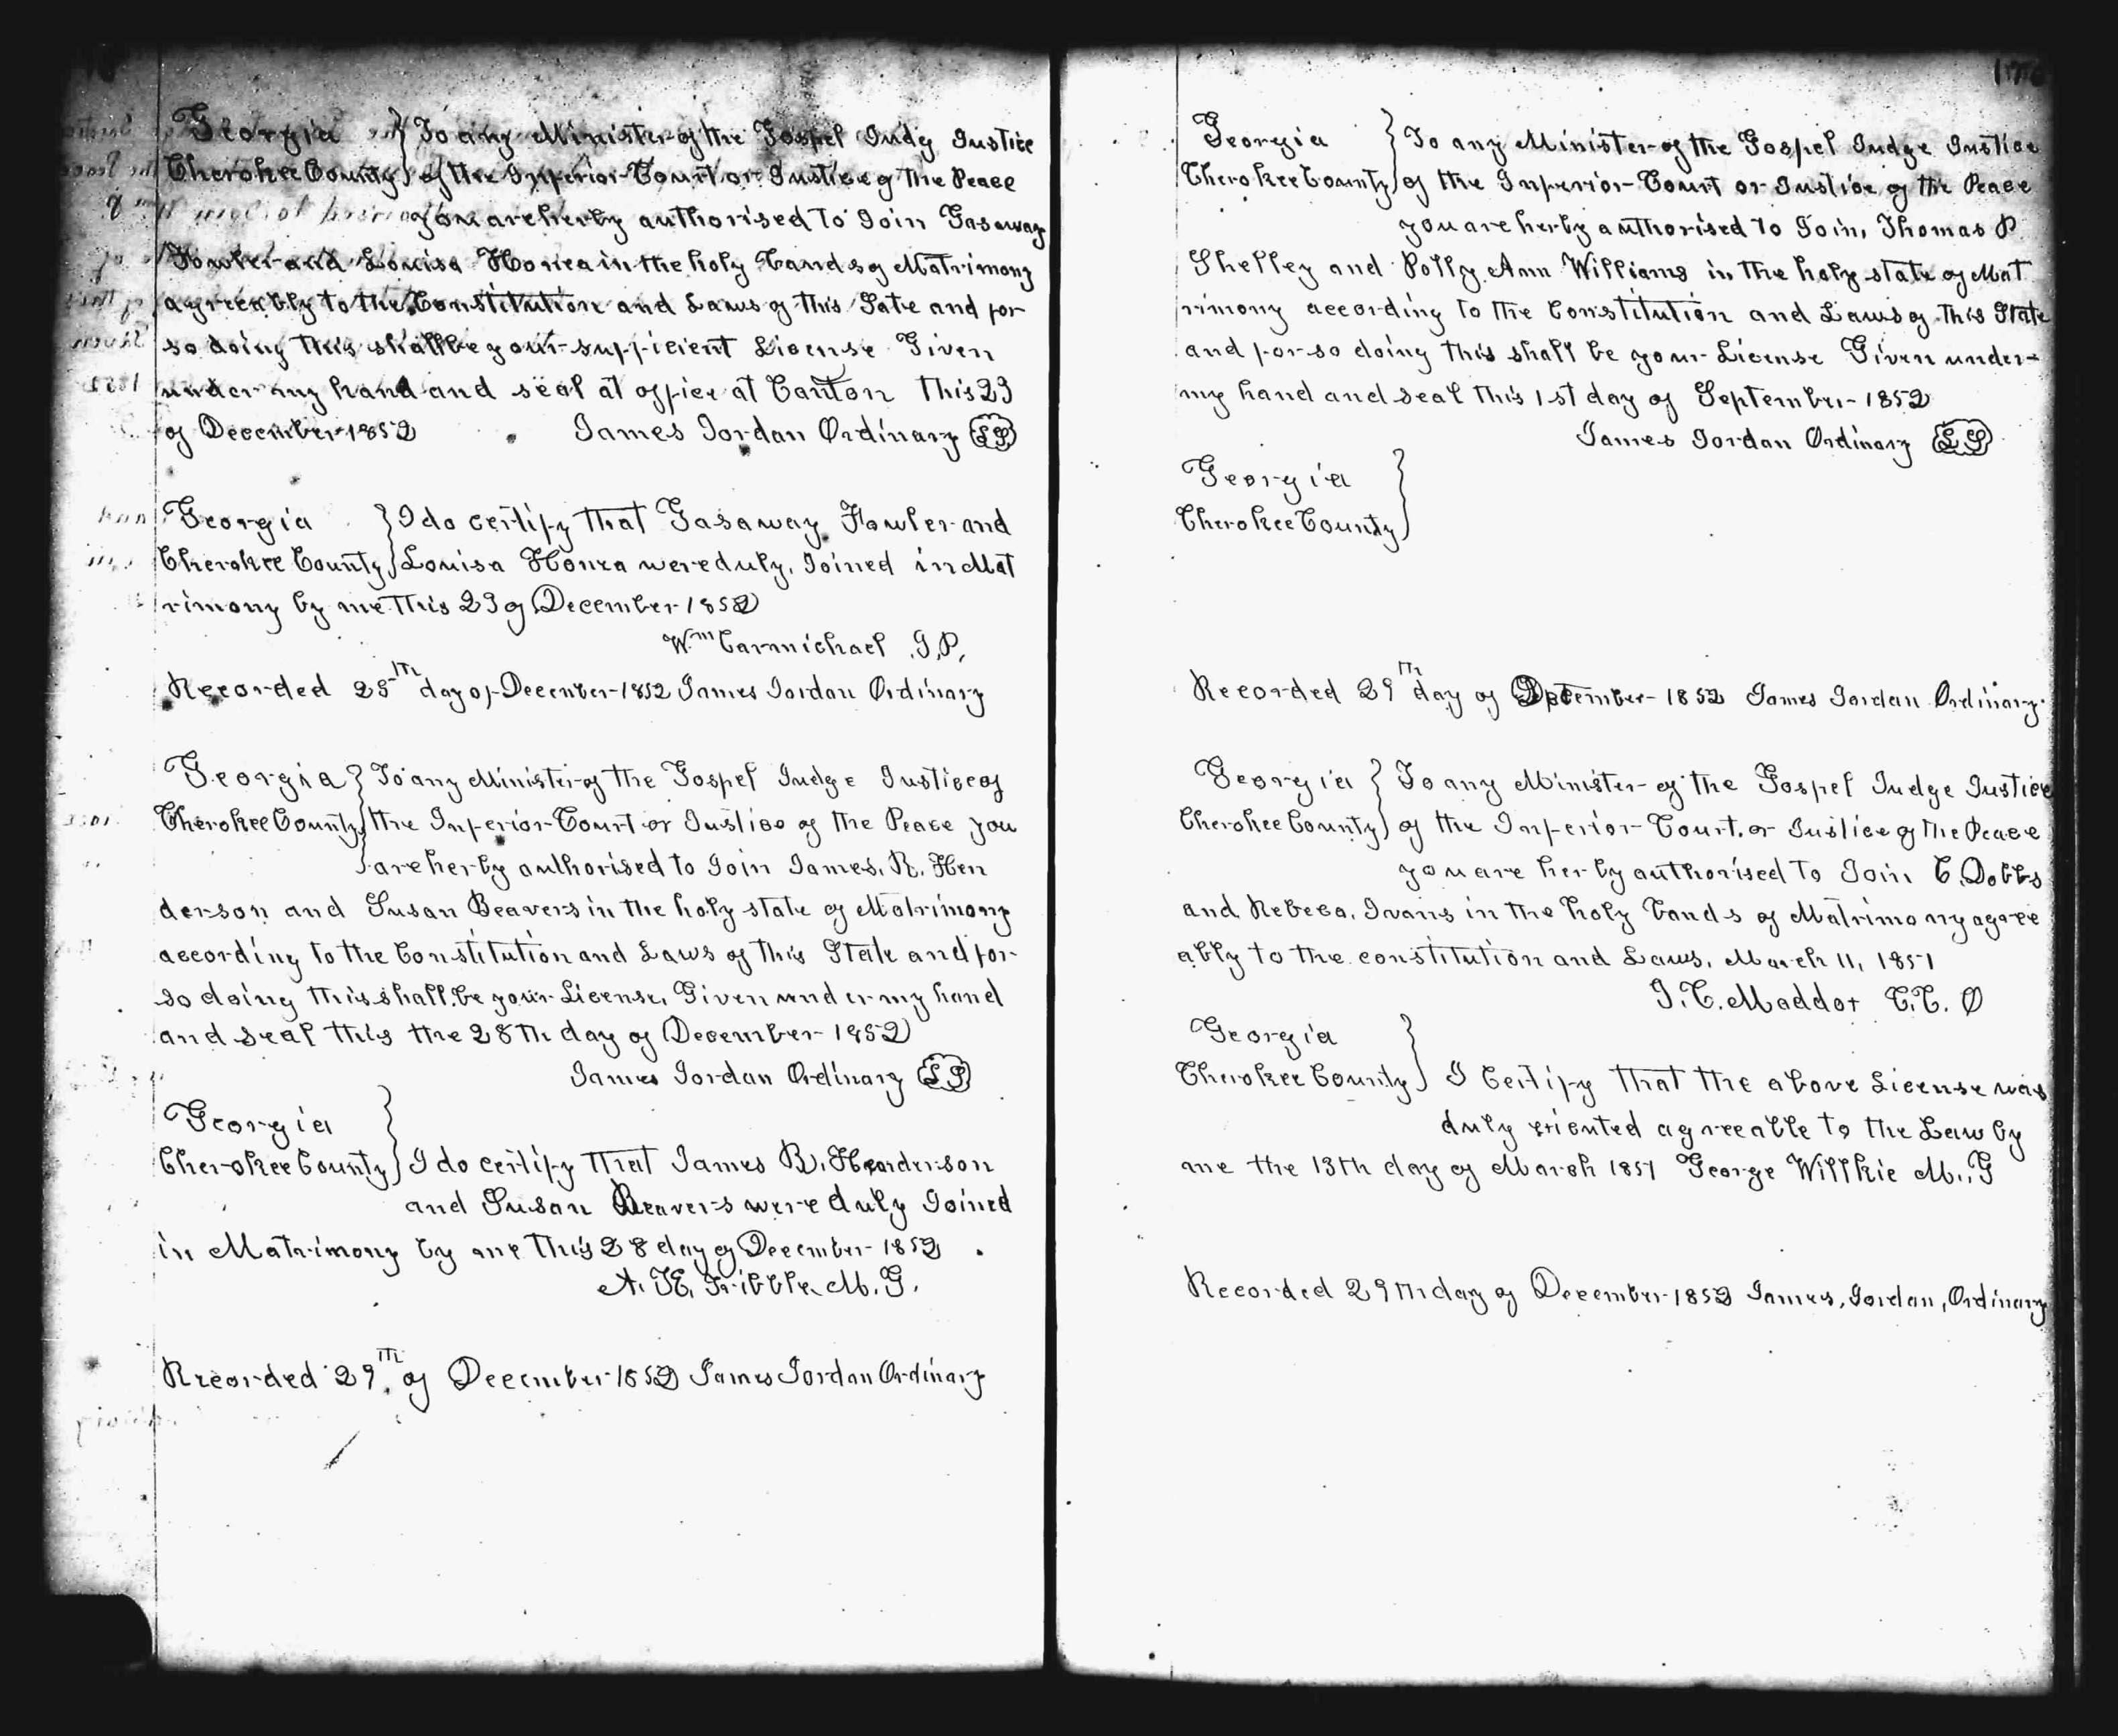 Georgia } To any Minister of the Gospel Judg Justice
Cherokee County } of the Inferior Court or Justice of the Peace
you are herby authorised to Join Gasaway
Fowler and Louisa Honea in the holy bands of Matrimony
agreeably to the Constitution and Laws of this Sate and for
so doing this shall be your sufficient License Given
under my hand and seal at office at Canton this 23
of December 1852 James Jordan Ordinary LS
Georgia } I do certify that Gasaway Fowler and
Cherokee County } Louisa Honea were duly Joined in Mat
rimony by me this 23 of December 1852
Wm Carmichael J.P.
Recorded 25th day of December 1852 James Jordan Ordinary
Georgia } To any Minister of the Gospel Judge Justice of
Cherokee County } the Inferior Court or Justice of the Peace you
are herby authorised to Join James. R. Hen
derson and Susan Beavers in the holy state of Matrimony
according to the Constitution and Laws of this State and for
so doing this shall be your License, Given under my hand
and seal this the 28th day of December 1852
James Jordan Ordinary LS
Georgia }
Cherokee County } I do certify that James R. Henderson
and Susan Beavers were duly Joined
in Matrimony by me this 28 day of December 1852
Tribble M. G.
Recorded 29th of December 1852 James Jordan Ordinary
Georgia } To any Minister of the Gospel Judge Justice
Cherokee County } of the Inferior Court or Justice of the Peace
you are herby authorised to Join, Thomas P
Shelley and Polly Ann Williams in the holy state of Mat
rimony according to the Constitution and Laws of this State
and for so doing this shall be your License Given under
my hand and seal this 1st day of September 1852
James Jordan Ordinary LS
Georgia }
Cherokee County }
Recorded 29th day of 1852 James Jordan Ordinary
Georgia } To any Minister of the Gospel Judge Justice
Cherokee County } of the Inferior Court. or Justice of the Peace
you are herby authorised to Join C. Dobbs
and Rebeca, Ivans in the holy bands of Matrimony agree
ably to the constitution and Laws, March 11, 1851
J. C. Maddox C.C. O
Georgia
Cherokee County } I Certify that the above License was
duly agreeable to the Law by
me the 13th day of March 1851 George Willkie M.G
Recorded 29th day of December 1852 James, Jordan, Ordinary